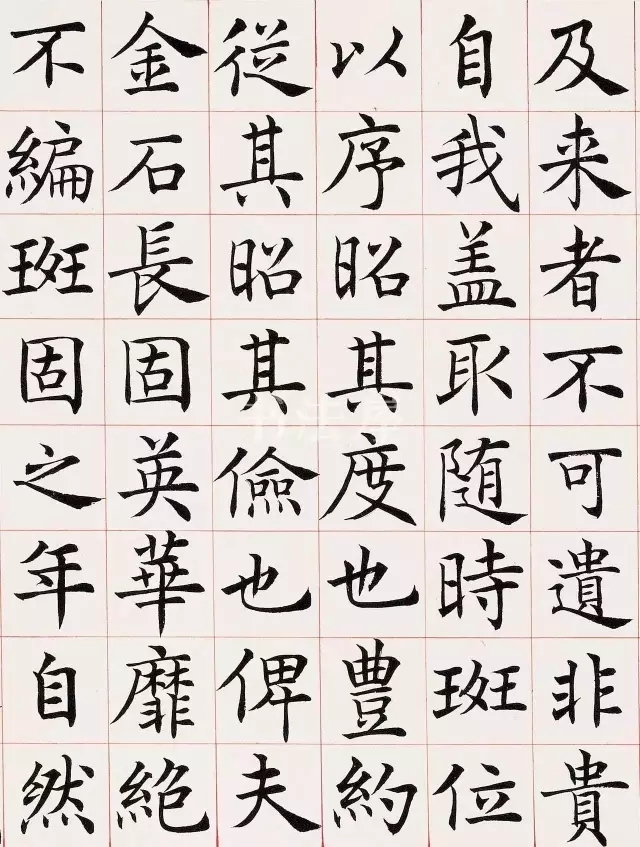 及来者不可遺非貴
自我盖取随時班位
以序昭其度也豊約
從其昭其儉也俾夫
金石長固英華靡絶
不編班固之年自然
书法屋